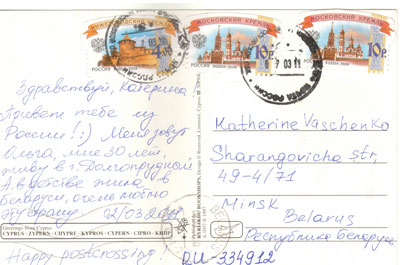 НИЖЕГОРОДСКИЙ КРЕМЛЬ
МОСКОВСКИЙ КРЕМЛЬ
МОСКОВСКИЙ КРЕМЛЬ
10р.
10р.
РОССИЯ RUSSIA 2009
РОССИЯ RUSSIA 2009
Здравствуй, Катерина
Привет тебе из
России! :) Меня зовут
Ольга, мне 30 лет,
живу в г. Долгопрудном
А в детстве жила в
Беларуси, очень люблю
эту страну 12/03 2011
Greetings from Cyprus
CYPRUS - ZYPERN - CHYPRE - KYPROS - CYPERN - CIPRO - КИПР
Happy postcrossing
Katherine Vaschenko
Sharangovicha str,
49-4/71
Minsk
Belarus
Республика Беларусь
RU-334912